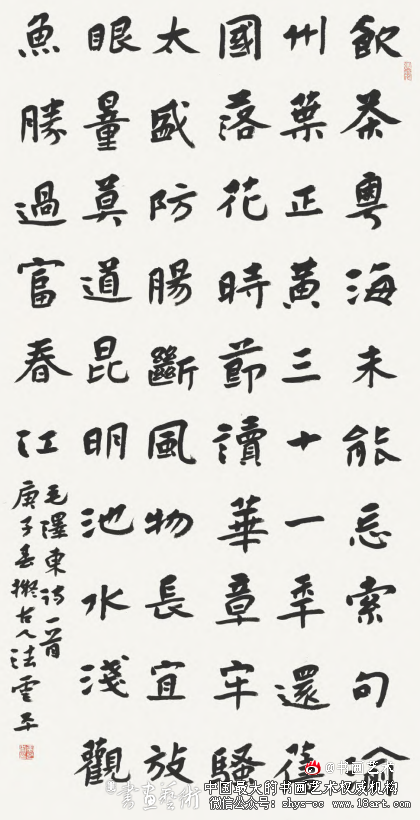 飲茶粵海未能忘索句渝
州葉正黃三十一年還舊
國落花時節讀華章牢騷
太盛防腸斷風物長宜放
眼量莫道昆明池水淺觀
魚勝過富春江
毛澤東詩一首
庚子春擬古人法雲平
@书画艺术
書畫藝術
中国最大的书画艺术权威机构
微信公众号: shys-cc www.18art.com